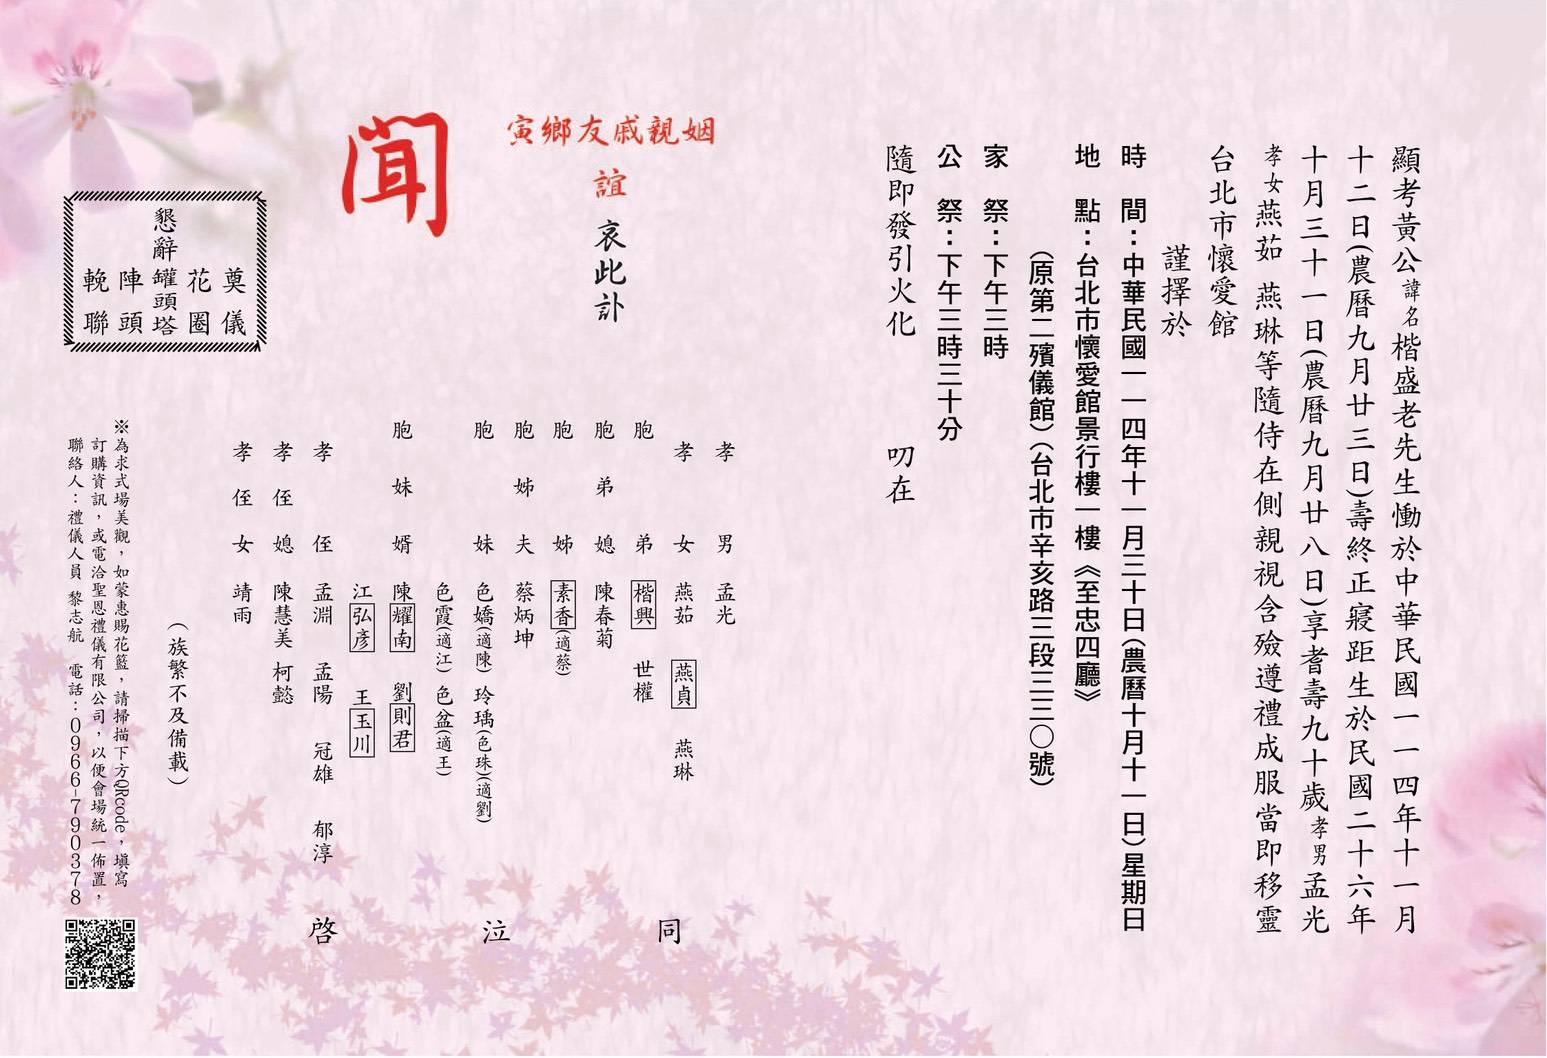 顯考黃公諱名楷盛老先生慟於中華民國一一四年十一月
十二日(農曆九月廿三日)壽終正寢距生於民國二十六年
十月三十一日(農曆九月廿八日)享耆壽九十歲孝男孟光
孝女燕茹 燕琳等隨侍在側親視含殮遵禮成服當即移靈
台北市懷愛館
謹擇於
時 間：中華民國一一四年十一月三十日(農曆十月十一日)星期日
地 點：台北市懷愛館景行樓一樓《至忠四廳》
(原第二殯儀館)(台北市辛亥路三段三三〇號)
家 祭：下午三時
公 祭：下午三時三十分
隨即發引火化 叨在
姻親戚友鄉寅
誼
哀此訃
聞
孝男 孟光
孝女 燕茹 燕貞 燕琳
胞弟 楷興 世權
胞弟媳 陳春菊
胞姊 素香(適蔡)
胞姊夫 蔡炳坤
胞妹 色嬌(適陳) 玲瑀(色珠)(適劉)
色霞(適江) 色盆(適王)
胞妹婿 陳耀南 劉則君
江弘彥 王玉川
孝侄 孟淵 孟陽 冠雄 郁淳
孝侄媳 陳慧美 柯懿
孝侄女 靖雨
(族繁不及備載)
同 泣 啓
懇辭
奠儀
花圈
罐頭塔
陣頭
輓聯
※為求式場美觀，如蒙惠賜花籃，請掃描下方QRcode，填寫
訂購資訊，或電洽聖恩禮儀有限公司，以便會場統一佈置，
聯絡人：禮儀人員 黎志航 電話：0966-790378